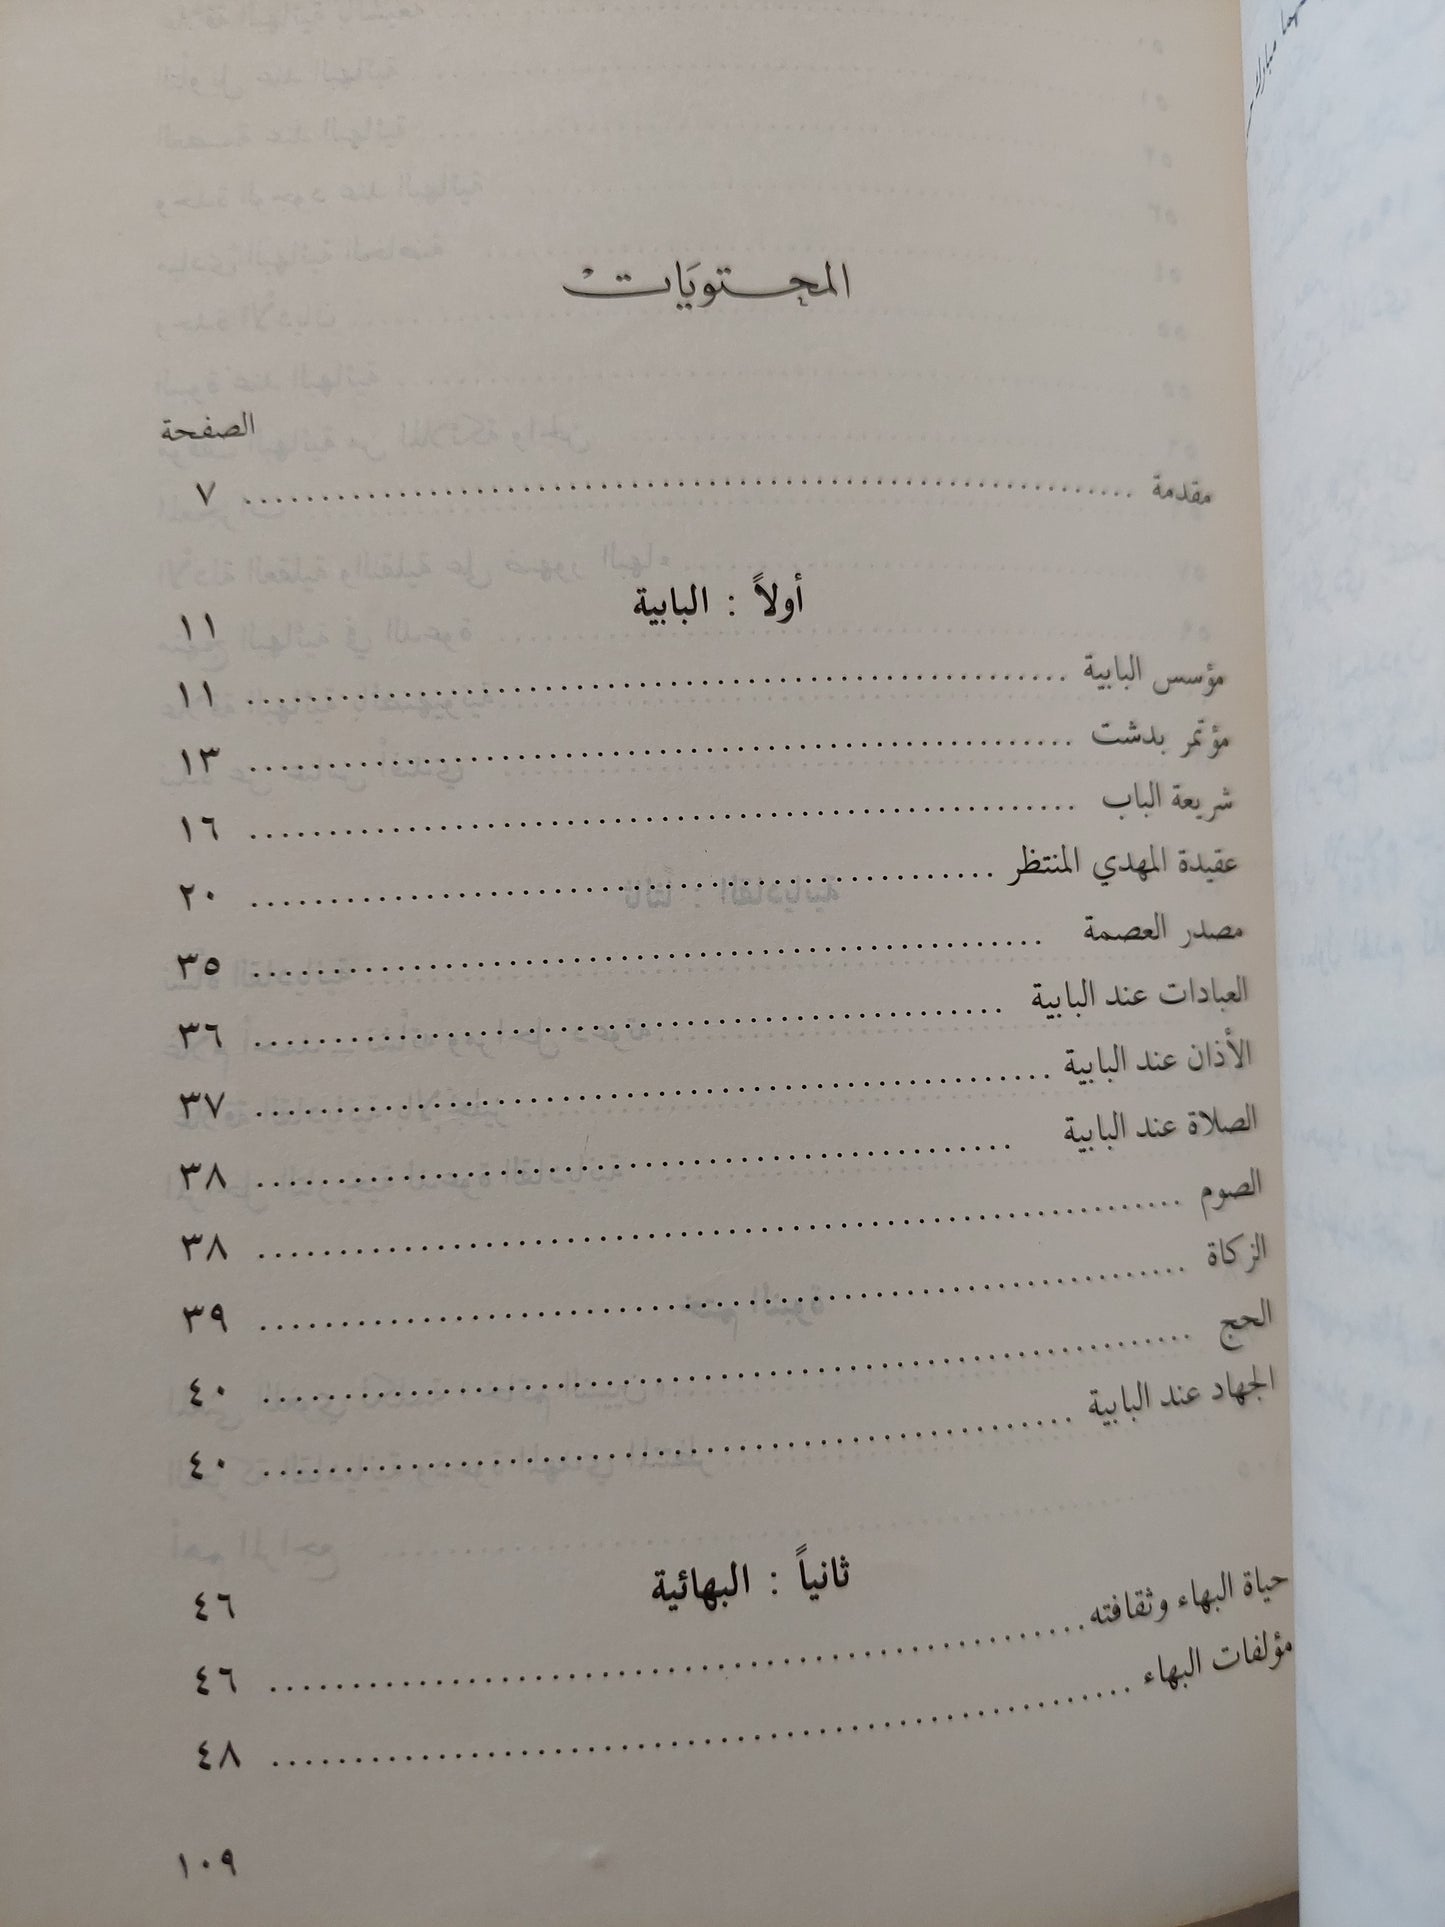 المحتويات
الصفحة
مقدمة ........ ٧
أولاً : البابية ١١
مؤسس البابية ........ ١١
مؤتمر بدشت ........ ١٣
شريعة الباب ........ ١٦
عقيدة المهدي المنتظر ........ ٢٠
مصدر العصمة ........ ٣٥
العبادات عند البابية ........ ٣٦
الأذان عند البابية ........ ٣٧
الصلاة عند البابية ........ ٣٨
الصوم ........ ٣٨
الزكاة ........ ٣٩
الحج ........ ٤٠
الجهاد عند البابية ........ ٤٠
ثانياً : البهائية ٤٦
حياة البهاء وثقافته ........ ٤٦
مؤلفات البهاء ........ ٤٨
١٠٩